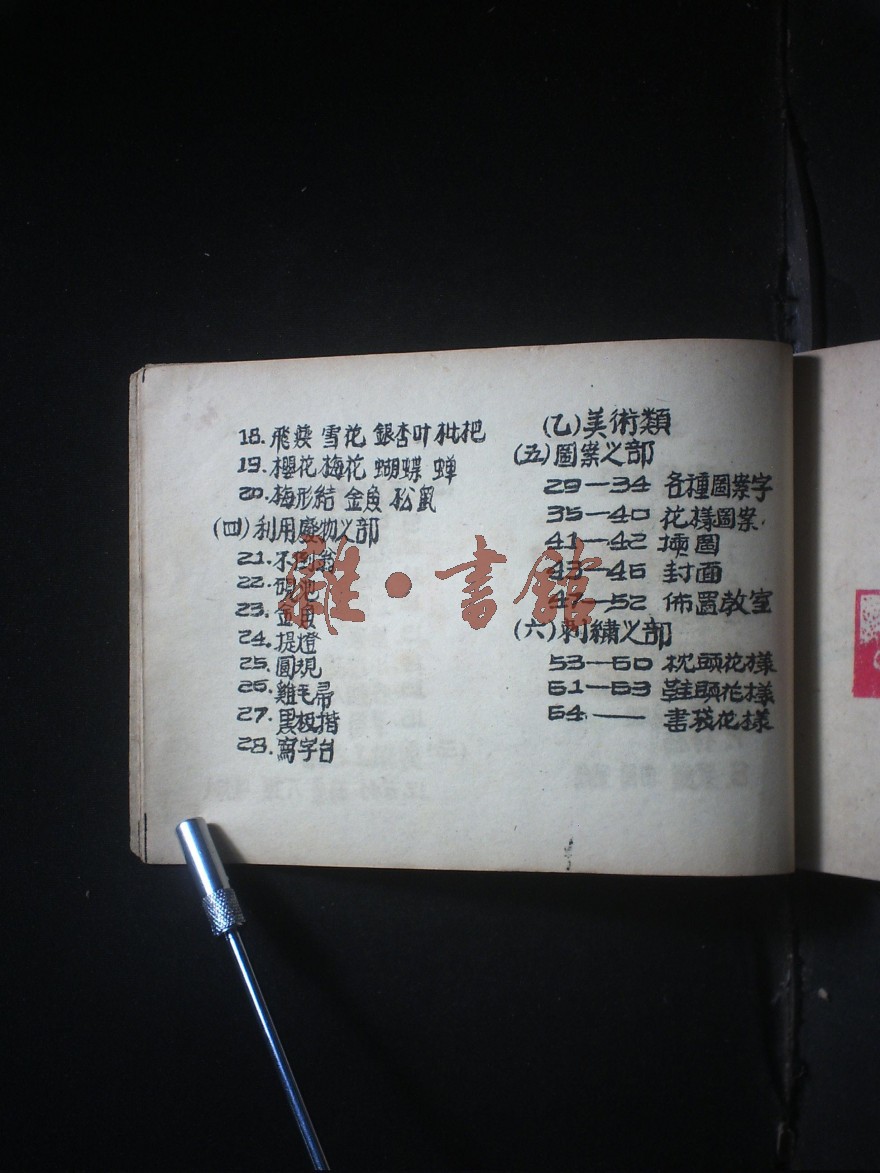 18. 飛燕 雪花 銀杏叶 枇杷
19. 櫻花 梅花 蝴蝶 蝉
20. 梅形結 金魚 松鼠
(四)利用廢物之部
21. 不倒翁
22. 硯池
23. 金魚
24. 提燈
25. 圓規
26. 雞毛帚
27. 黑板揩
28. 寫字台
(乙)美術類
(五)圖案之部
29—34 各種圖案字
35—40 花樣圖案
41—42 圖
43—46 封面
47—52 佈置教室
(六)刺繡之部
53—60 枕頭花樣
61—63 鞋頭花樣
64 —— 書袋花樣
雜·書館